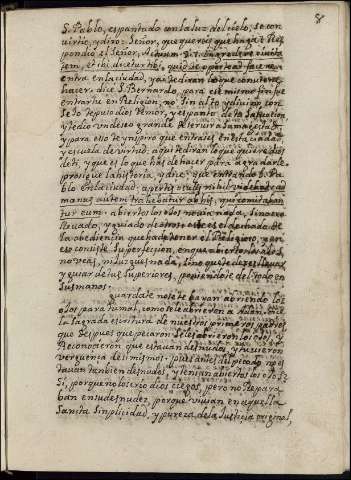 8
S. Pablo, espantado con la luz del cielo, se con
virtio, y dixo: Señor, que quereis que haga? Res
pondio el Señor, ingredere civita
tem, et ibi dicetur tibi, quid te oporteat facere.
entra en la ciudad, y ai te diran lo que conviene
hacer. dice S. Bernardo, para este mismo fin he
entrado en Religion,
Dios temor, y espanto de la
y te dio un deseo grande de servir a su magestad:
y para eso te inspiro que entrases en esta ciudad,
y escuela de virtud; aqui te diran lo que quiere dios
de ti, y que es lo que has de hacer para agradarle.
prosigue la historia, y dice, que entrando S. Pa
blo en la ciudad, apertis oculis nihil videbat ad
manus autem trahebatur ab his, qui comitaban
tur cum. abiertos los ojos no via nada, sino era
llevado, y guiado de otros este es el dechado de
la obediencia que ha de tener el Religioso, y en
eso consiste su perfeccion, en que abiertos los ojos,
no veas, ni juzgues nada, sino que te dexes llevar
y guiar de tus Superiores, poniendote del todo en
sus manos.
Guardate no se te vayan abriendo los
ojos para tu mal, como se le abrieron a Adan, dice
la sagrada escritura de nuestros primeros padres
que despues que pecaron se les abrieron los ojos, y
Reconocieron que estavan desnudos, y tuvieron
verguenza de si mismos. pues antes del picado no es
tavan tambien desnudos, y tenian abiertos los ojos?
Si, porque no los crio dios ciegos, pero no Repara
ban en su desnudez, porque vivian en aquella
Santa Simplicidad, y pureza de la Justicia original,